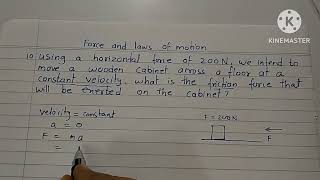 Force and laws of motion
KINEMASTER
10. Using a horizontal force of 200N, we intend to
move a wooden cabinet across a floor at a
constant velocity. what is the friction force that
will be exerted on the cabinet?
velocity = constant
a = 0
F = ma
=
F = 200N
F